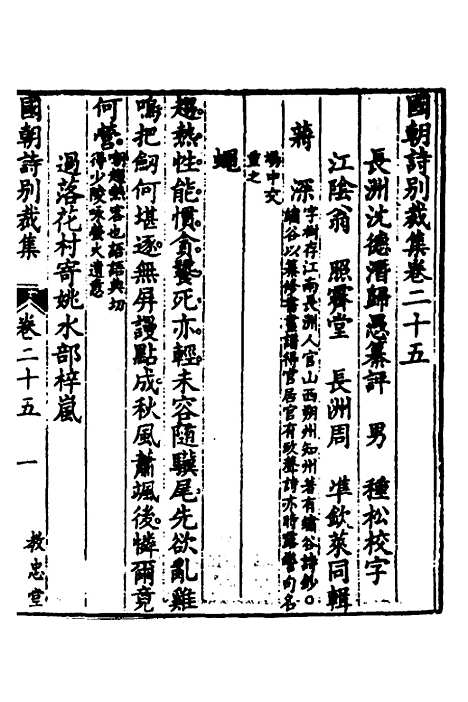 國朝詩別裁集卷二十五
長洲沈德潛歸愚纂評 男 種松校字
江陰翁 照霽堂 長洲周 準欽萊同輯
蔣 深
字樹存江南長洲人官山西朔州知州著有繡谷詩鈔○
繡谷以纂修書畫譜得官居官有政聲詩亦時露警句名
場中交
重之
蠅
趨熱性能慣貪饕死亦輕未容隨驥尾先欲亂雞
鳴把劒何堪逐無屏謾點成秋風蕭颯後憐爾竟
何營
刺趨熱客也語語典切
得少陵咏螢火遺意
過落花村寄姚水部梓嵐
國朝詩別裁集 卷二十五 一 教忠堂